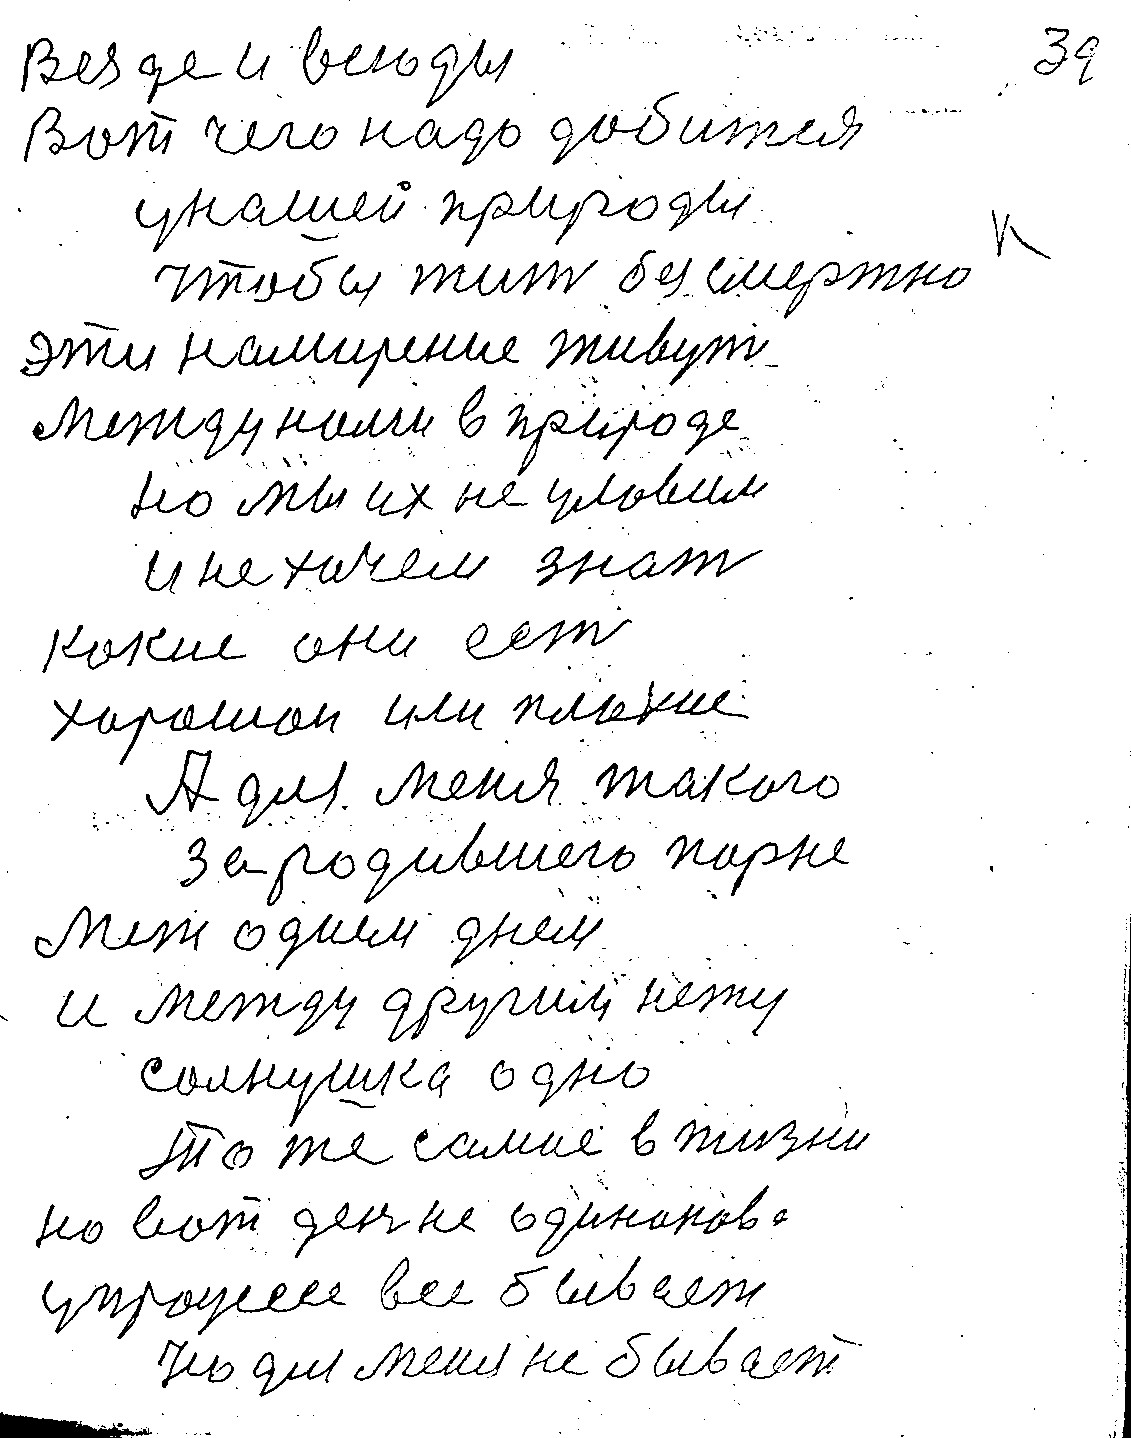 39
Везде и всюды
Вот чего надо добится
унашей природы
чтобы жит безсмертно
эти намирение живут
Между нами в природе
но мы их не уловим
и не хочем знат
какие они ест
хорошои или плохие
А для меня такого
зародившего парне
Меж одием днем
и между другим нежу
солнушка одно
то же самие в жизни
но вот ден не одинаково
упроцесе все бывает
Но для меня не бывает